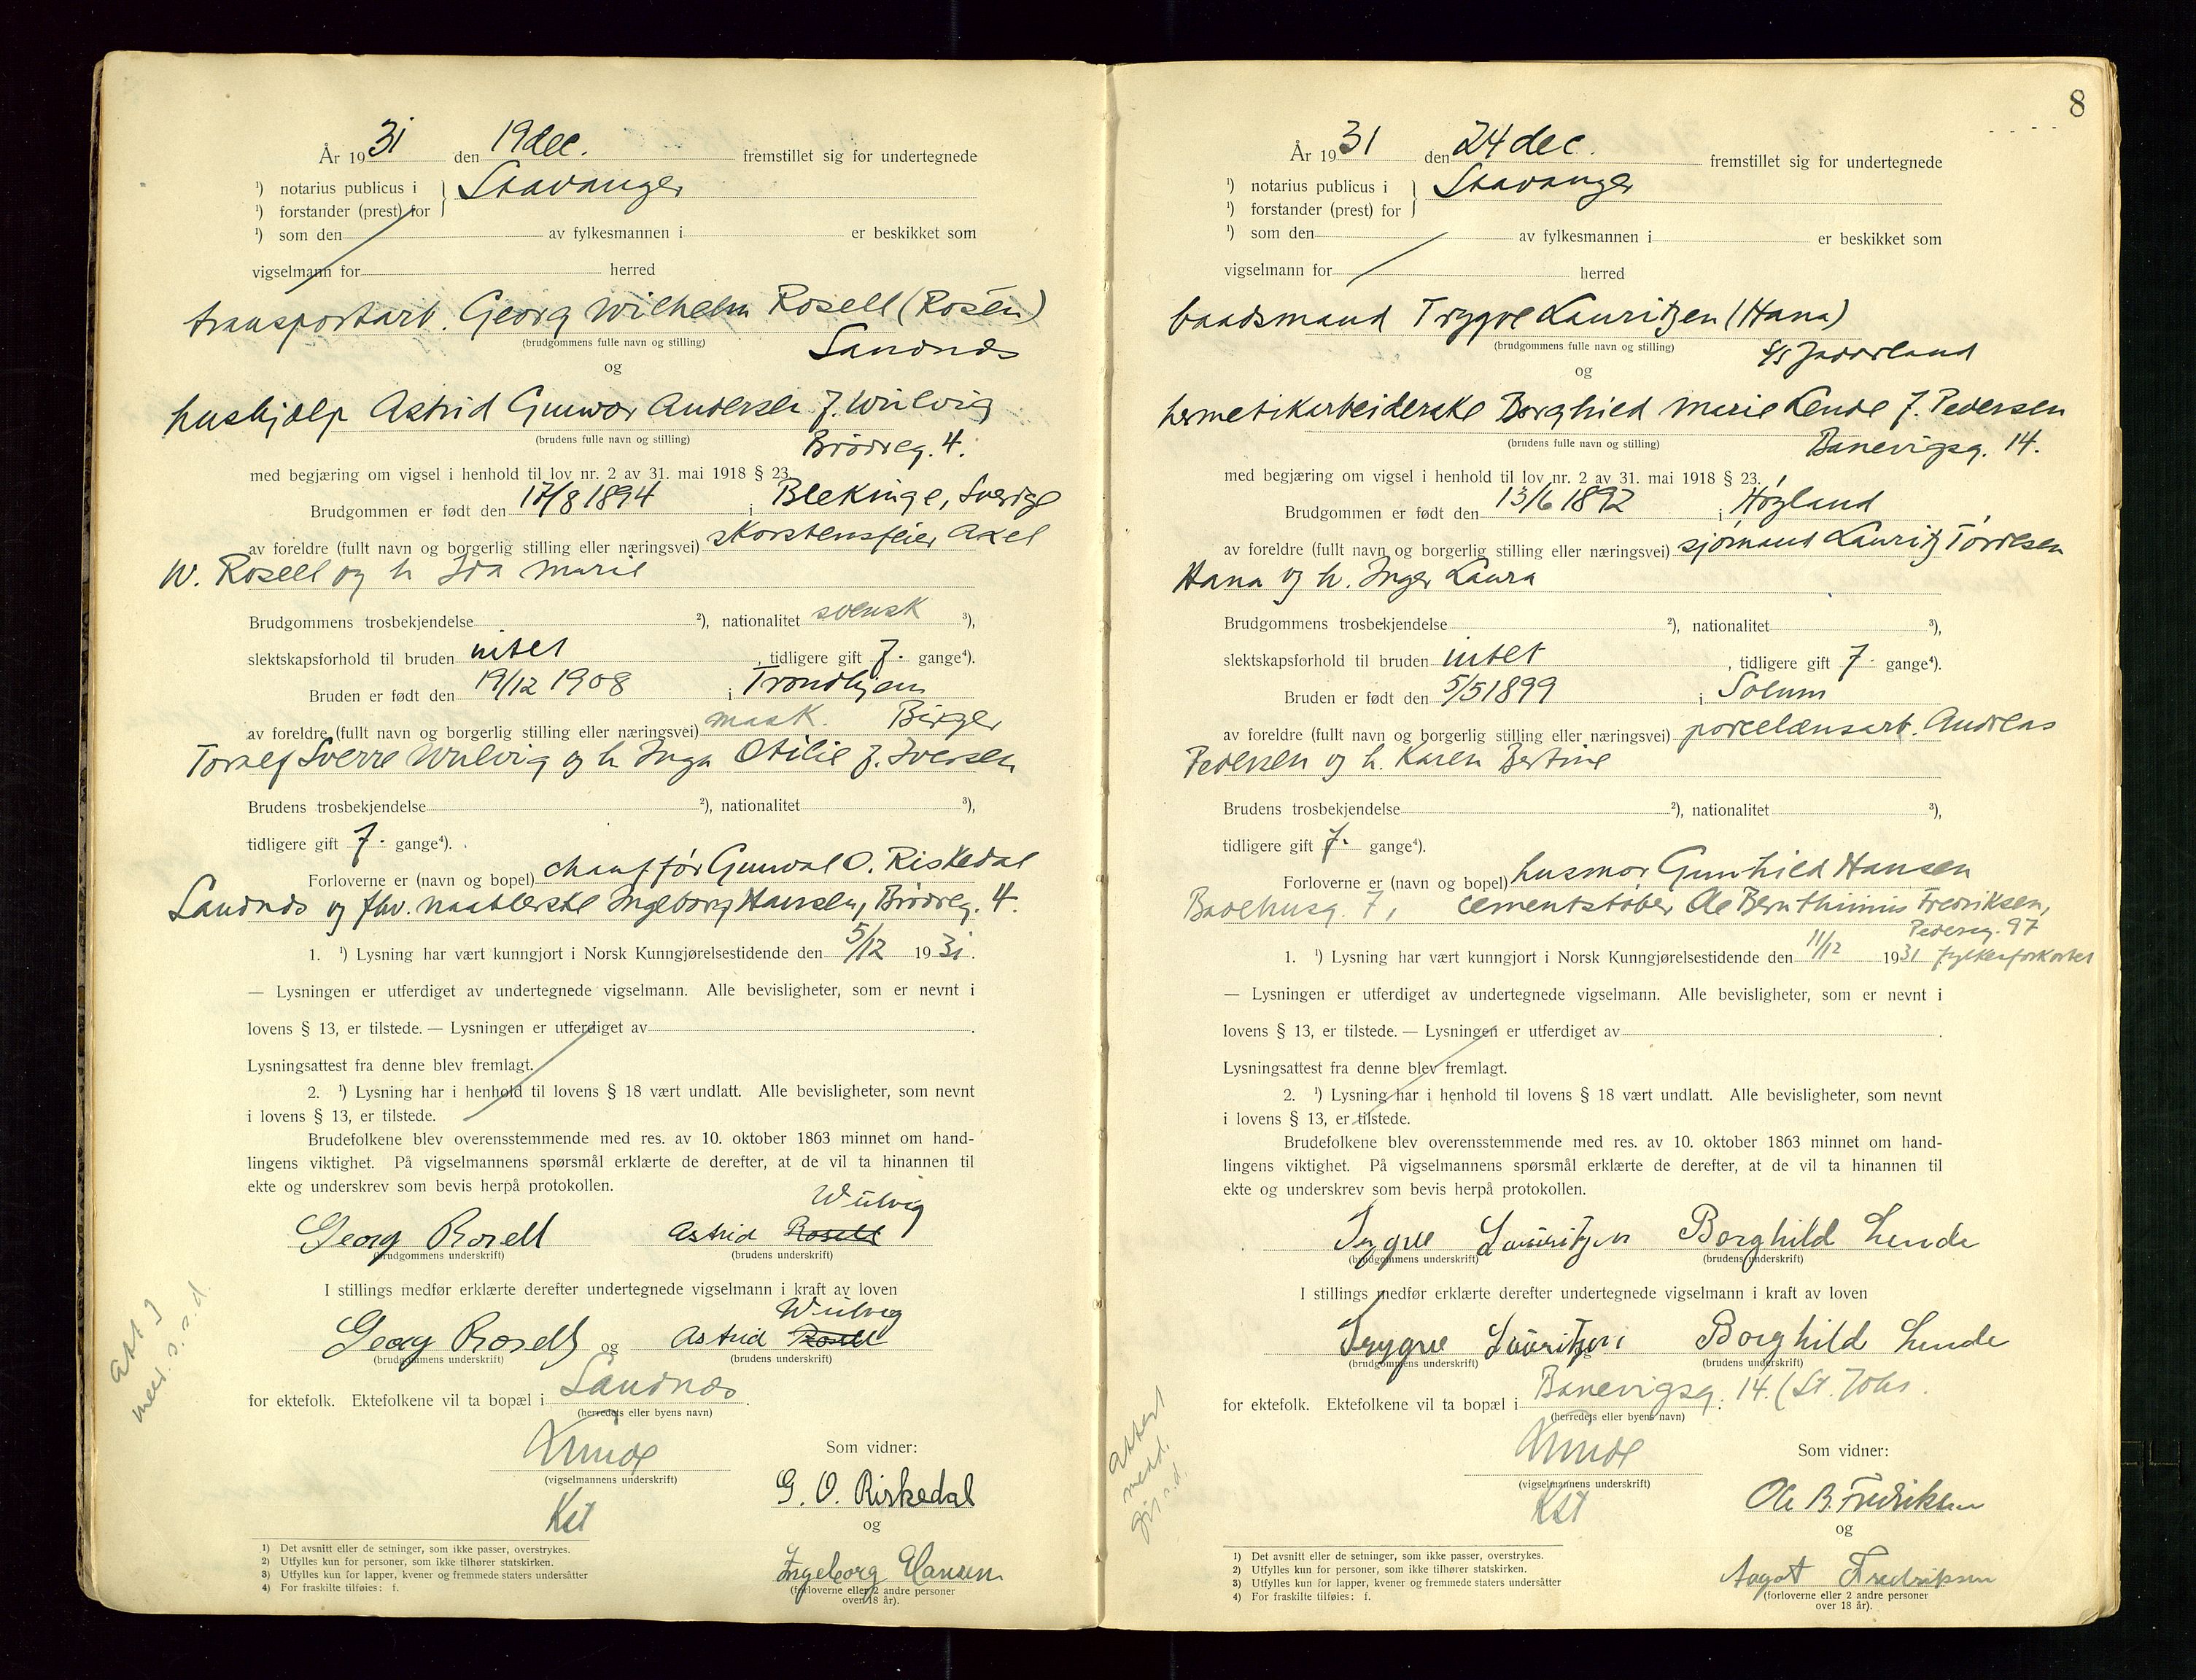 År 1931 den 19 dec. fremstillet sig for undertegnede
¹) notarius publicus i } Stavanger
¹) forstander (prest) for
¹) som den av fylkesmannen i er beskikket som
vigselmann for herred
transportarb. Georg Wilhelm Rosell (Rosén)
(brudgommens fulle navn og stilling) Sandnes
og
hushjælp Astrid Gunvor Andersen f. Wulvig
(brudens fulle navn og stilling) Brødreg. 4.
med begjæring om vigsel i henhold til lov nr. 2 av 31. mai 1918 § 23.
Brudgommen er født den 17/8 1894 i Blekinge, Sverige
av foreldre (fullt navn og borgerlig stilling eller næringsvei) skorstensfeier Axel
W. Rosell og h Ida Marie
Brudgommens trosbekjendelse ²), nationalitet svensk ³),
slektskapsforhold til bruden intet , tidligere gift f. gange⁴).
Bruden er født den 19/12 1908 i Trondhjem
av foreldre (fullt navn og borgerlig stilling eller næringsvei) mask. Birger
Toralf Sverre Wulvig og h Inga Otilie f. Iversen
Brudens trosbekjendelse ²), nationalitet ³),
tidligere gift f. gange⁴).
Forloverne er (navn og bopel) chauffør Gunval O. Riskedal
Sandnes og fhv. naatlerske Ingeborg Hansen, Brødreg. 4.
1. ¹) Lysning har vært kunngjort i Norsk Kunngjørelsestidende den 5/12 1931.
— Lysningen er utferdiget av undertegnede vigselmann. Alle bevisligheter, som er nevnt i
lovens § 13, er tilstede. — Lysningen er utferdiget av .
Lysningsattest fra denne blev fremlagt.
2. ¹) Lysning har i henhold til lovens § 18 vært undlatt. Alle bevisligheter, som nevnt
i lovens § 13, er tilstede.
Brudefolkene blev overensstemmende med res. av 10. oktober 1863 minnet om hand-
lingens viktighet. På vigselmannens spørsmål erklærte de derefter, at de vil ta hinannen til
ekte og underskrev som bevis herpå protokollen.
Wulvig
Georg Rosell Astrid Rosell
(brudgommens underskrift) (brudens underskrift)
I stillings medfør erklærte derefter undertegnede vigselmann i kraft av loven
Wulvig
Georg Rosell og Astrid Rosell
(brudgommens underskrift) (brudens underskrift)
for ektefolk. Ektefolkene vil ta bopæl i Sandnes .
(herredets eller byens navn)
Att
Som vidner:
(vigselmannens underskrift)
G. O. Riskedal
Kst
og
Ingeborg Hansen
(forloverne eller 2 andre personer
over 18 år).
1) Det avsnitt eller de setninger, som ikke passer, overstrykes.
2) Utfylles kun for personer, som ikke tilhører statskirken.
3) Utfylles kun for lapper, kvener og fremmede staters undersåtter
4) For fraskilte tilføies: f.
8
År 1931 den 24 dec. fremstillet sig for undertegnede
¹) notarius publicus i } Stavanger
¹) forstander (prest) for
¹) som den av fylkesmannen i er beskikket som
vigselmann for herred
baadsmand Trygve Lauritzen (Hana)
(brudgommens fulle navn og stilling) S/S Jaederland
og
hermetikarbeiderske Borghild Marie Lende f. Pedersen
(brudens fulle navn og stilling) Banevigsg. 14.
med begjæring om vigsel i henhold til lov nr. 2 av 31. mai 1918 § 23.
Brudgommen er født den 13/6 1892 i Høyland
av foreldre (fullt navn og borgerlig stilling eller næringsvei) sjømand Lauritz Tørresen
Hana og h. Inger Laura
Brudgommens trosbekjendelse ²), nationalitet ³),
slektskapsforhold til bruden intet , tidligere gift f. gange⁴).
Bruden er født den 5/5 1899 i Solum
av foreldre (fullt navn og borgerlig stilling eller næringsvei) porcelænsarb. Andreas
Pedersen og h. Karen Bertine
Brudens trosbekjendelse ²), nationalitet ³),
tidligere gift f. gange⁴).
Forloverne er (navn og bopel) husmor Gunhild Hansen
Badehusg. 7, cementstøber Ole Bernthinius Fredriksen,
Pedersg. 97
1. ¹) Lysning har vært kunngjort i Norsk Kunngjørelsestidende den 11/12 1931
— Lysningen er utferdiget av undertegnede vigselmann. Alle bevisligheter, som er nevnt i
lovens § 13, er tilstede. — Lysningen er utferdiget av .
Lysningsattest fra denne blev fremlagt.
2. ¹) Lysning har i henhold til lovens § 18 vært undlatt. Alle bevisligheter, som nevnt
i lovens § 13, er tilstede.
Brudefolkene blev overensstemmende med res. av 10. oktober 1863 minnet om hand-
lingens viktighet. På vigselmannens spørsmål erklærte de derefter, at de vil ta hinannen til
ekte og underskrev som bevis herpå protokollen.
Trygve Lauritzen Borghild Lende
(brudgommens underskrift) (brudens underskrift)
I stillings medfør erklærte derefter undertegnede vigselmann i kraft av loven
Trygve Lauritzen Borghild Lende
(brudgommens underskrift) (brudens underskrift)
for ektefolk. Ektefolkene vil ta bopæl i Banevigsg. 14. (St. Johs.
(herredets eller byens navn)
Attest
medd.
Som vidner:
(vigselmannens underskrift)
Kst
Ole B. Fredriksen
og
Aagot Fredriksen
(forloverne eller 2 andre personer
over 18 år).
1) Det avsnitt eller de setninger, som ikke passer, overstrykes.
2) Utfylles kun for personer, som ikke tilhører statskirken.
3) Utfylles kun for lapper, kvener og fremmede staters undersåtter
4) For fraskilte tilføies: f.